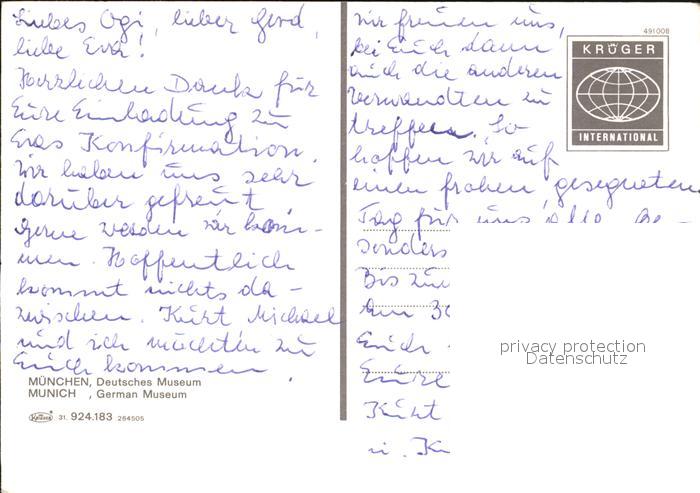 Liebes Ogi, lieber Gerd,
liebe Eva!
Herzlichen Dank für
Eure Einladung zu
Evas Konfirmation.
Wir haben uns sehr
darüber gefreut,
gerne werden wir kom-
men. Hoffentlich
kommt nichts da-
zwischen. Kurt Michael
und ich möchten zu
Euch kommen.
MÜNCHEN, Deutsches Museum
MUNICH , German Museum
Krüger 31. 924.183 264505
wir freuen uns,
bei Euch dann
auch die anderen
Verwandten zu
treffen. So
hoffen wir auf
einen frohen, gesegneten
Tag für uns alle be-
sonders
Bis zum
Am 30
Euch
Eure
Kurt
u.
491008
KRÜGER
INTERNATIONAL
privacy protection
Datenschutz